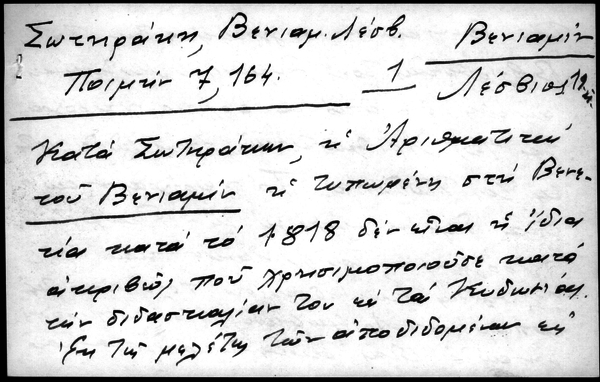 Σωτηράκη, Βενιαμ. Λέσβ.
Βενιαμίν
Ποιμήν 7, 164.
1
Λέσβιος 12
Κατά Σωτηράκην, ἡ Ἀριθμητική
τοῦ Βενιαμίν ἡ τυπωμένη στή Βενε-
τία κατά τό 1818 δέν εἶναι ἡ ἴδια
ἀκριβῶς πού χρησιμοποιοῦσε κατά
τήν διδασκαλίαν του εἰς τάς Κυδωνίας.
Ἐκ τῆς μελέτης τῶν ἀποδιδομένων εἰς